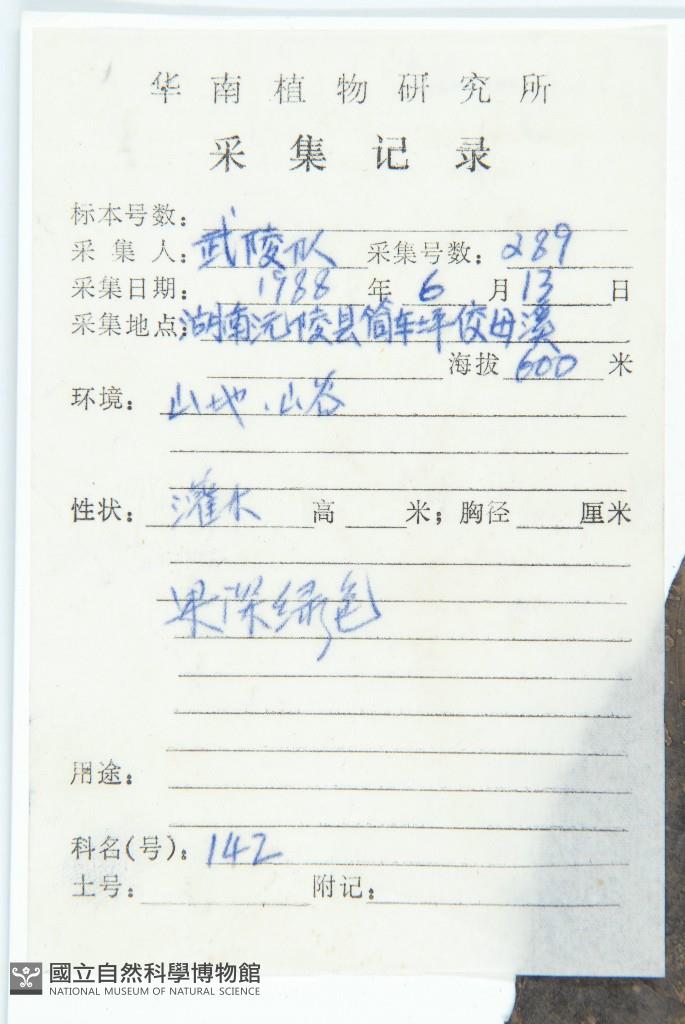 华南植物研究所
采集记录
标本号数：
采集人：武陵队 采集号数：289
采集日期：1988年6月13日
采集地点：湖南沅陵县筒车坪佼母溪
海拔600米
环境：山地、山谷
性状：灌木 高 米；胸径 厘米
果深绿色
用途：
科名(号)：142
土号： 附记：
國立自然科學博物館
NATIONAL MUSEUM OF NATURAL SCIENCE